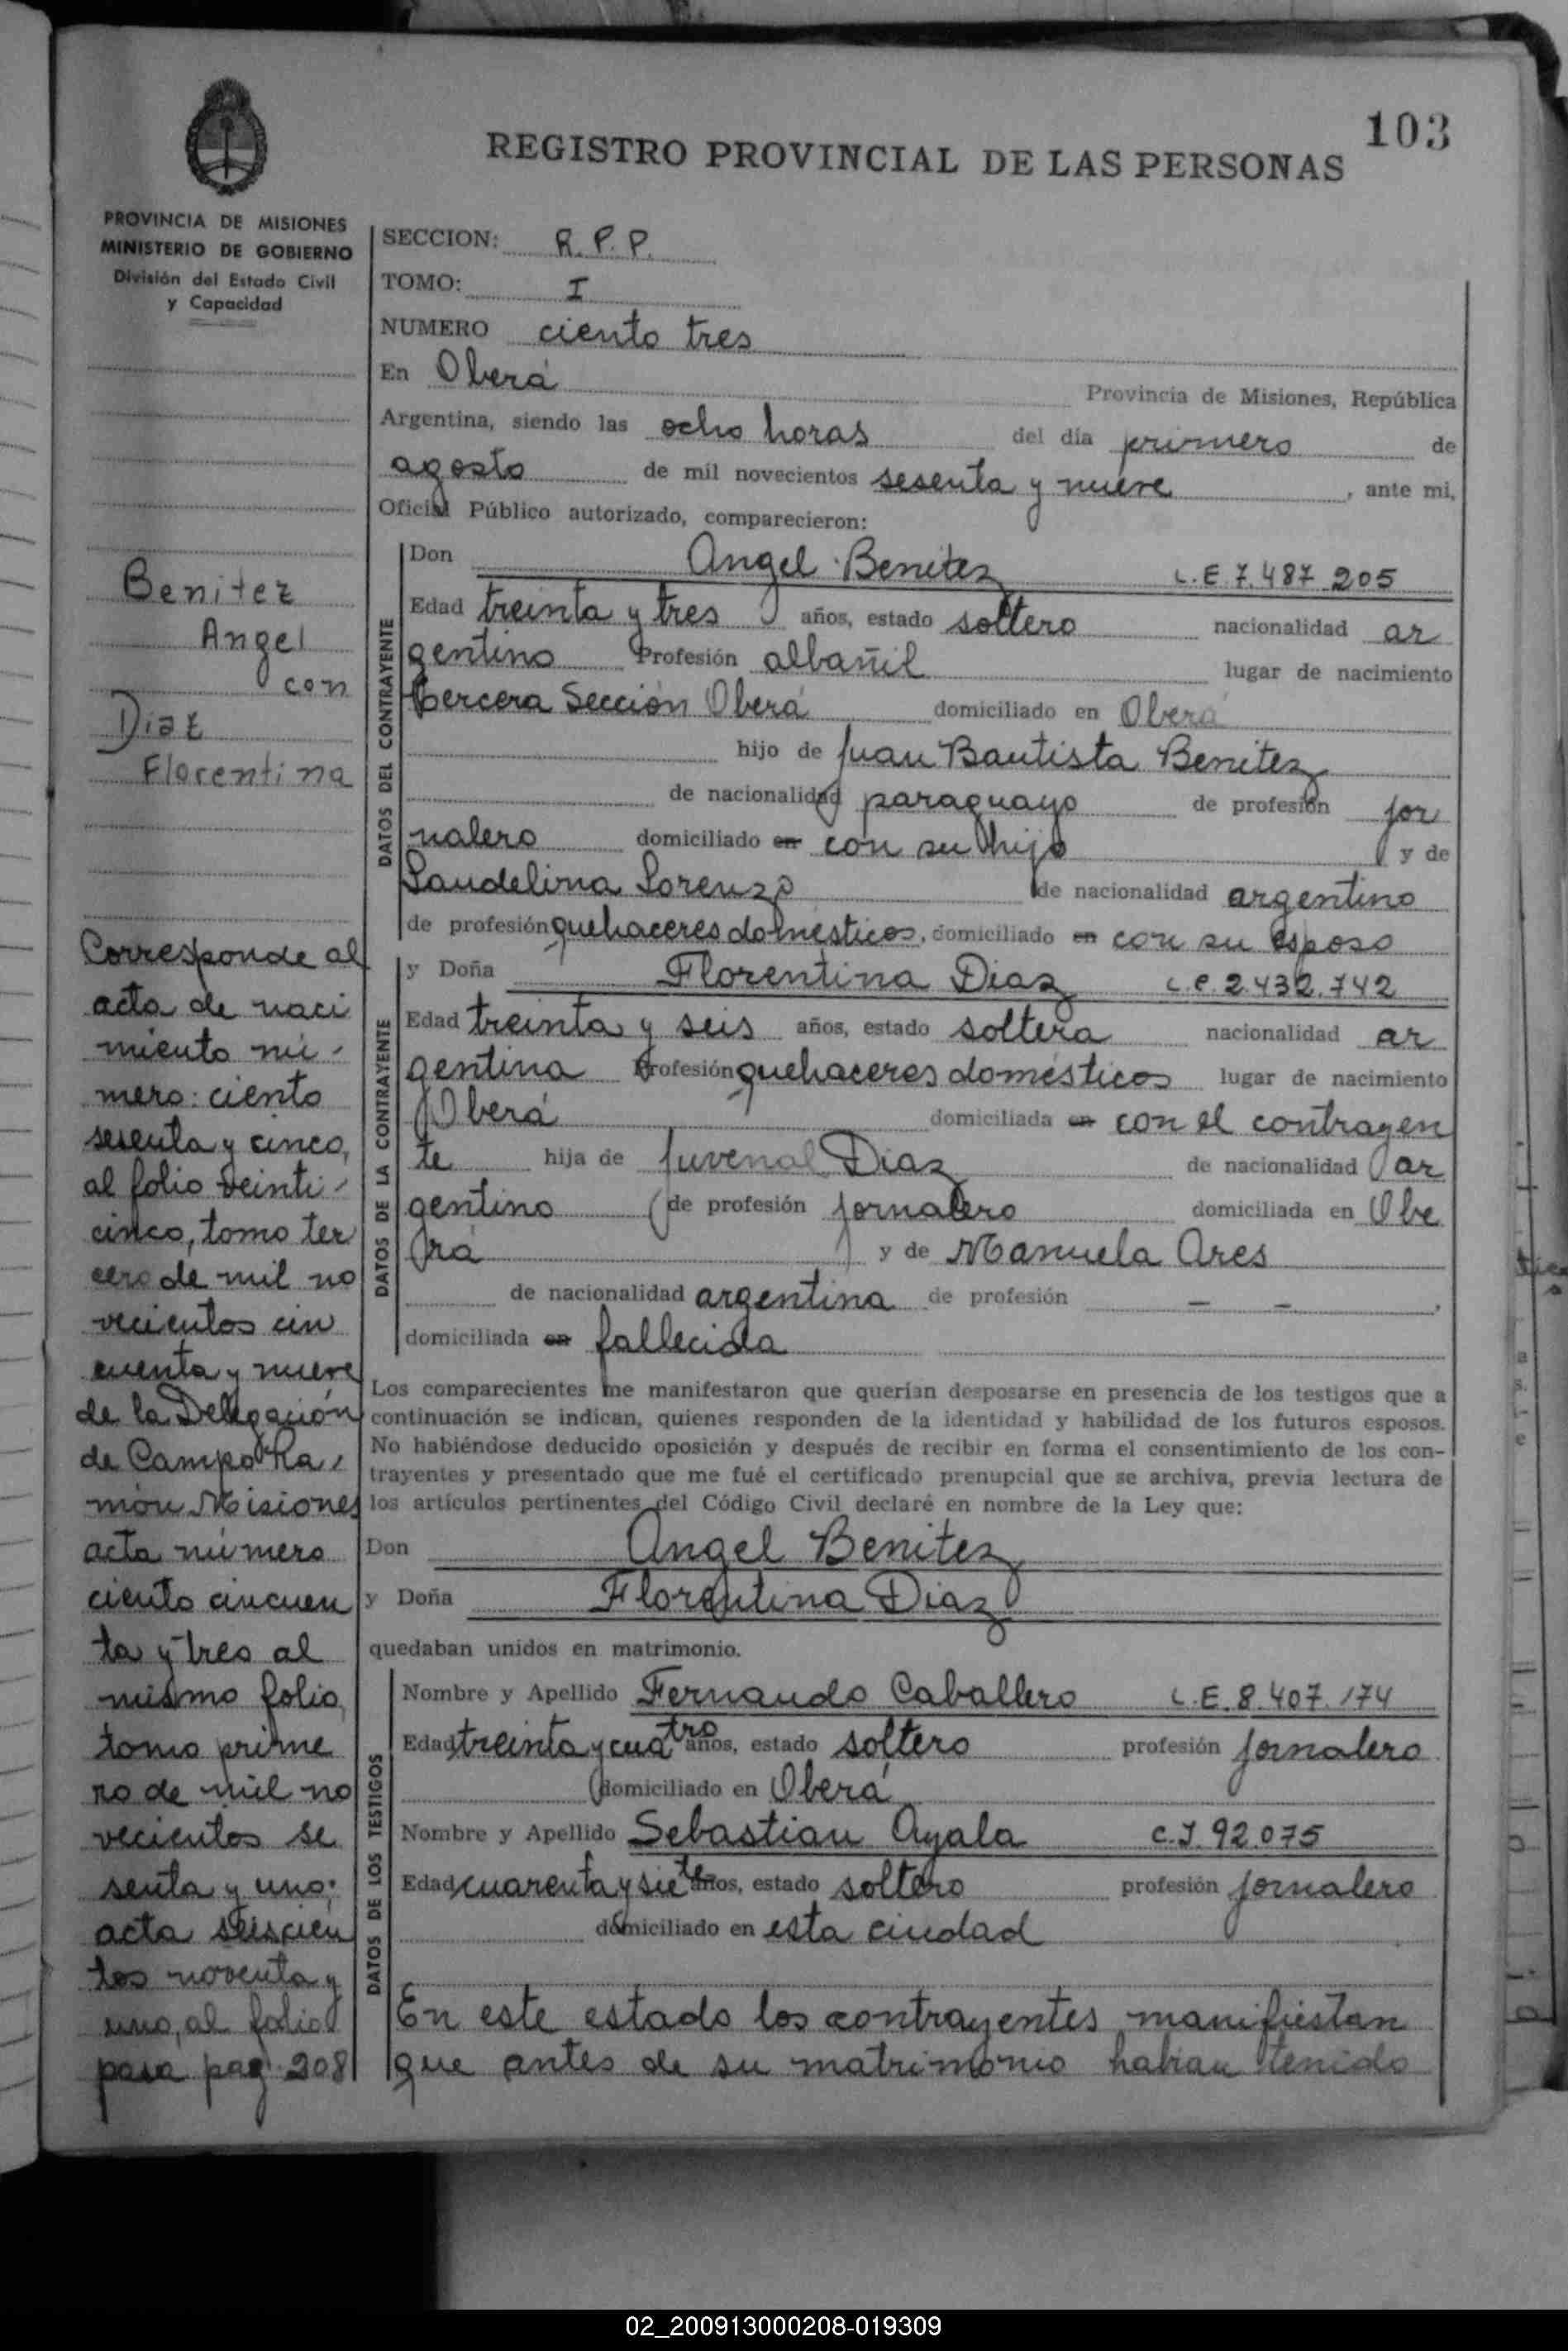 103
REGISTRO PROVINCIAL DE LAS PERSONAS
PROVINCIA DE MISIONES
MINISTERIO DE GOBIERNO
División del Estado Civil
y Capacidad
Benitez
Angel
con
Diaz
Florentina
Corresponde al
acta de naci
miento nú-
mero: ciento
sesenta y cinco,
al folio veinti-
cinco, tomo ter
cero de mil no
vecientos cin
cuenta y nueve
de la Delegación
de Campo Ra-
món Misiones
acta número
ciento cincuen
ta y tres al
mismo folio,
tomo prime
ro de mil no
vecientos se
senta y uno:
acta seiscien
tos noventa y
uno, al folio
pasa pag. 208
SECCION: R. P. P.
TOMO: I
NUMERO ciento tres
En Oberá Provincia de Misiones, República
Argentina, siendo las ocho horas del día primero de
agosto de mil novecientos sesenta y nueve, ante mi,
Oficial Público autorizado, comparecieron:
DATOS DEL CONTRAYENTE
Don Angel Benitez L.E. 7.487.205
Edad treinta y tres años, estado soltero nacionalidad ar
gentino Profesión albañil lugar de nacimiento
Tercera Sección Oberá domiciliado en Oberá
hijo de Juan Bautista Benitez
de nacionalidad paraguayo de profesión jor
nalero domiciliado en con su hijo y de
Laudelina Lorenzo de nacionalidad argentino
de profesión quehaceres domésticos, domiciliado en con su esposo
DATOS DE LA CONTRAYENTE
y Doña Florentina Diaz L.C. 2.432.742
Edad treinta y seis años, estado soltera nacionalidad ar
gentina Profesión quehaceres domésticos lugar de nacimiento
Oberá domiciliada en con el contrayen
te hija de Juvenal Diaz de nacionalidad ar
gentino de profesión jornalero domiciliada en Obe
rá y de Manuela Ares
de nacionalidad argentina de profesión – –,
domiciliada en fallecida
Los comparecientes me manifestaron que querían desposarse en presencia de los testigos que a
continuación se indican, quienes responden de la identidad y habilidad de los futuros esposos.
No habiéndose deducido oposición y después de recibir en forma el consentimiento de los con-
trayentes y presentado que me fué el certificado prenupcial que se archiva, previa lectura de
los artículos pertinentes del Código Civil declaré en nombre de la Ley que:
Don Angel Benitez
y Doña Florentina Diaz
quedaban unidos en matrimonio.
DATOS DE LOS TESTIGOS
Nombre y Apellido Fernando Caballero L.E. 8.407.174
Edad treinta y cuatro años, estado soltero profesión jornalero
domiciliado en Oberá
Nombre y Apellido Sebastian Ayala C.I. 92.075
Edad cuarenta y siete años, estado soltero profesión jornalero
domiciliado en esta ciudad
En este estado los contrayentes manifiestan
que antes de su matrimonio habian tenido
02_200913000208-019309